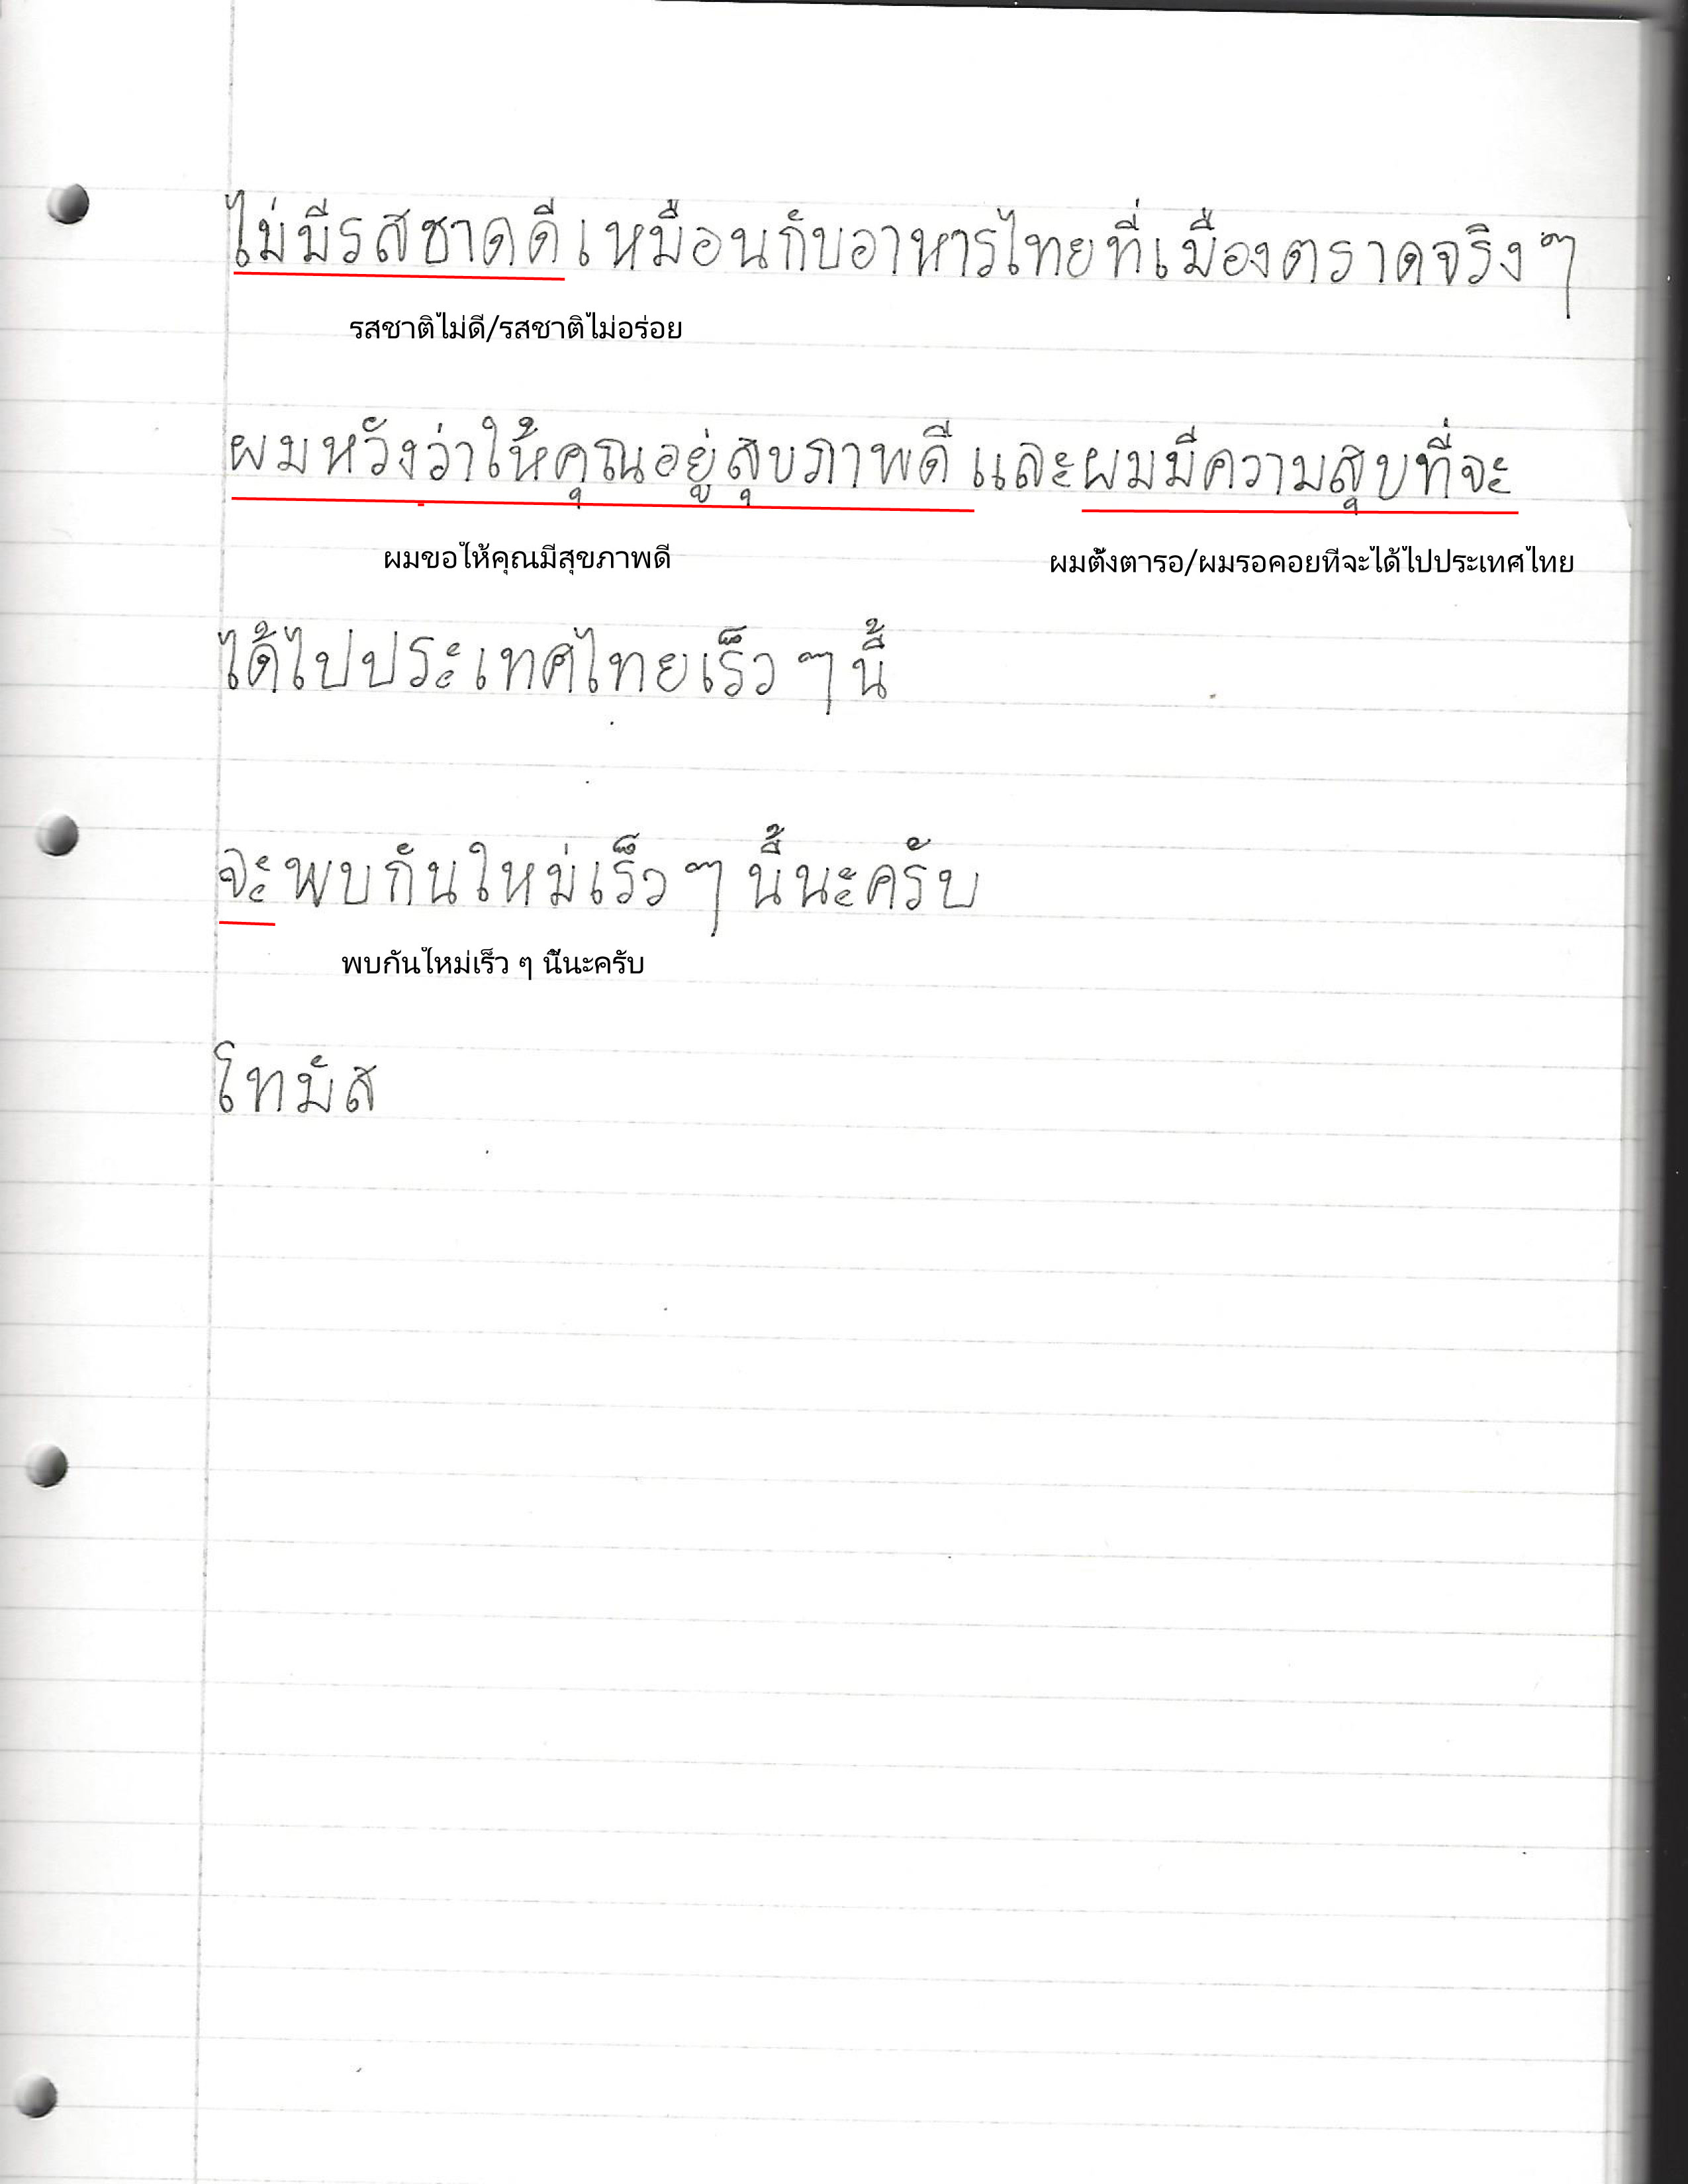 ไม่มีรสชาดดีเหมือนกับอาหารไทยที่เมืองตราดจริงๆ
รสชาติไม่ดี/รสชาติไม่อร่อย
ผมหวังว่าให้คุณอยู่สุขภาพดี และผมมีความสุขที่จะ
ผมขอให้คุณมีสุขภาพดี
ผมตั้งตารอ/ผมรอคอยที่จะได้ไปประเทศไทย
ได้ไปประเทศไทยเร็ว ๆ นี้
จะพบกันใหม่เร็ว ๆ นี้นะครับ
พบกันใหม่เร็ว ๆ นี้นะครับ
โทมัส